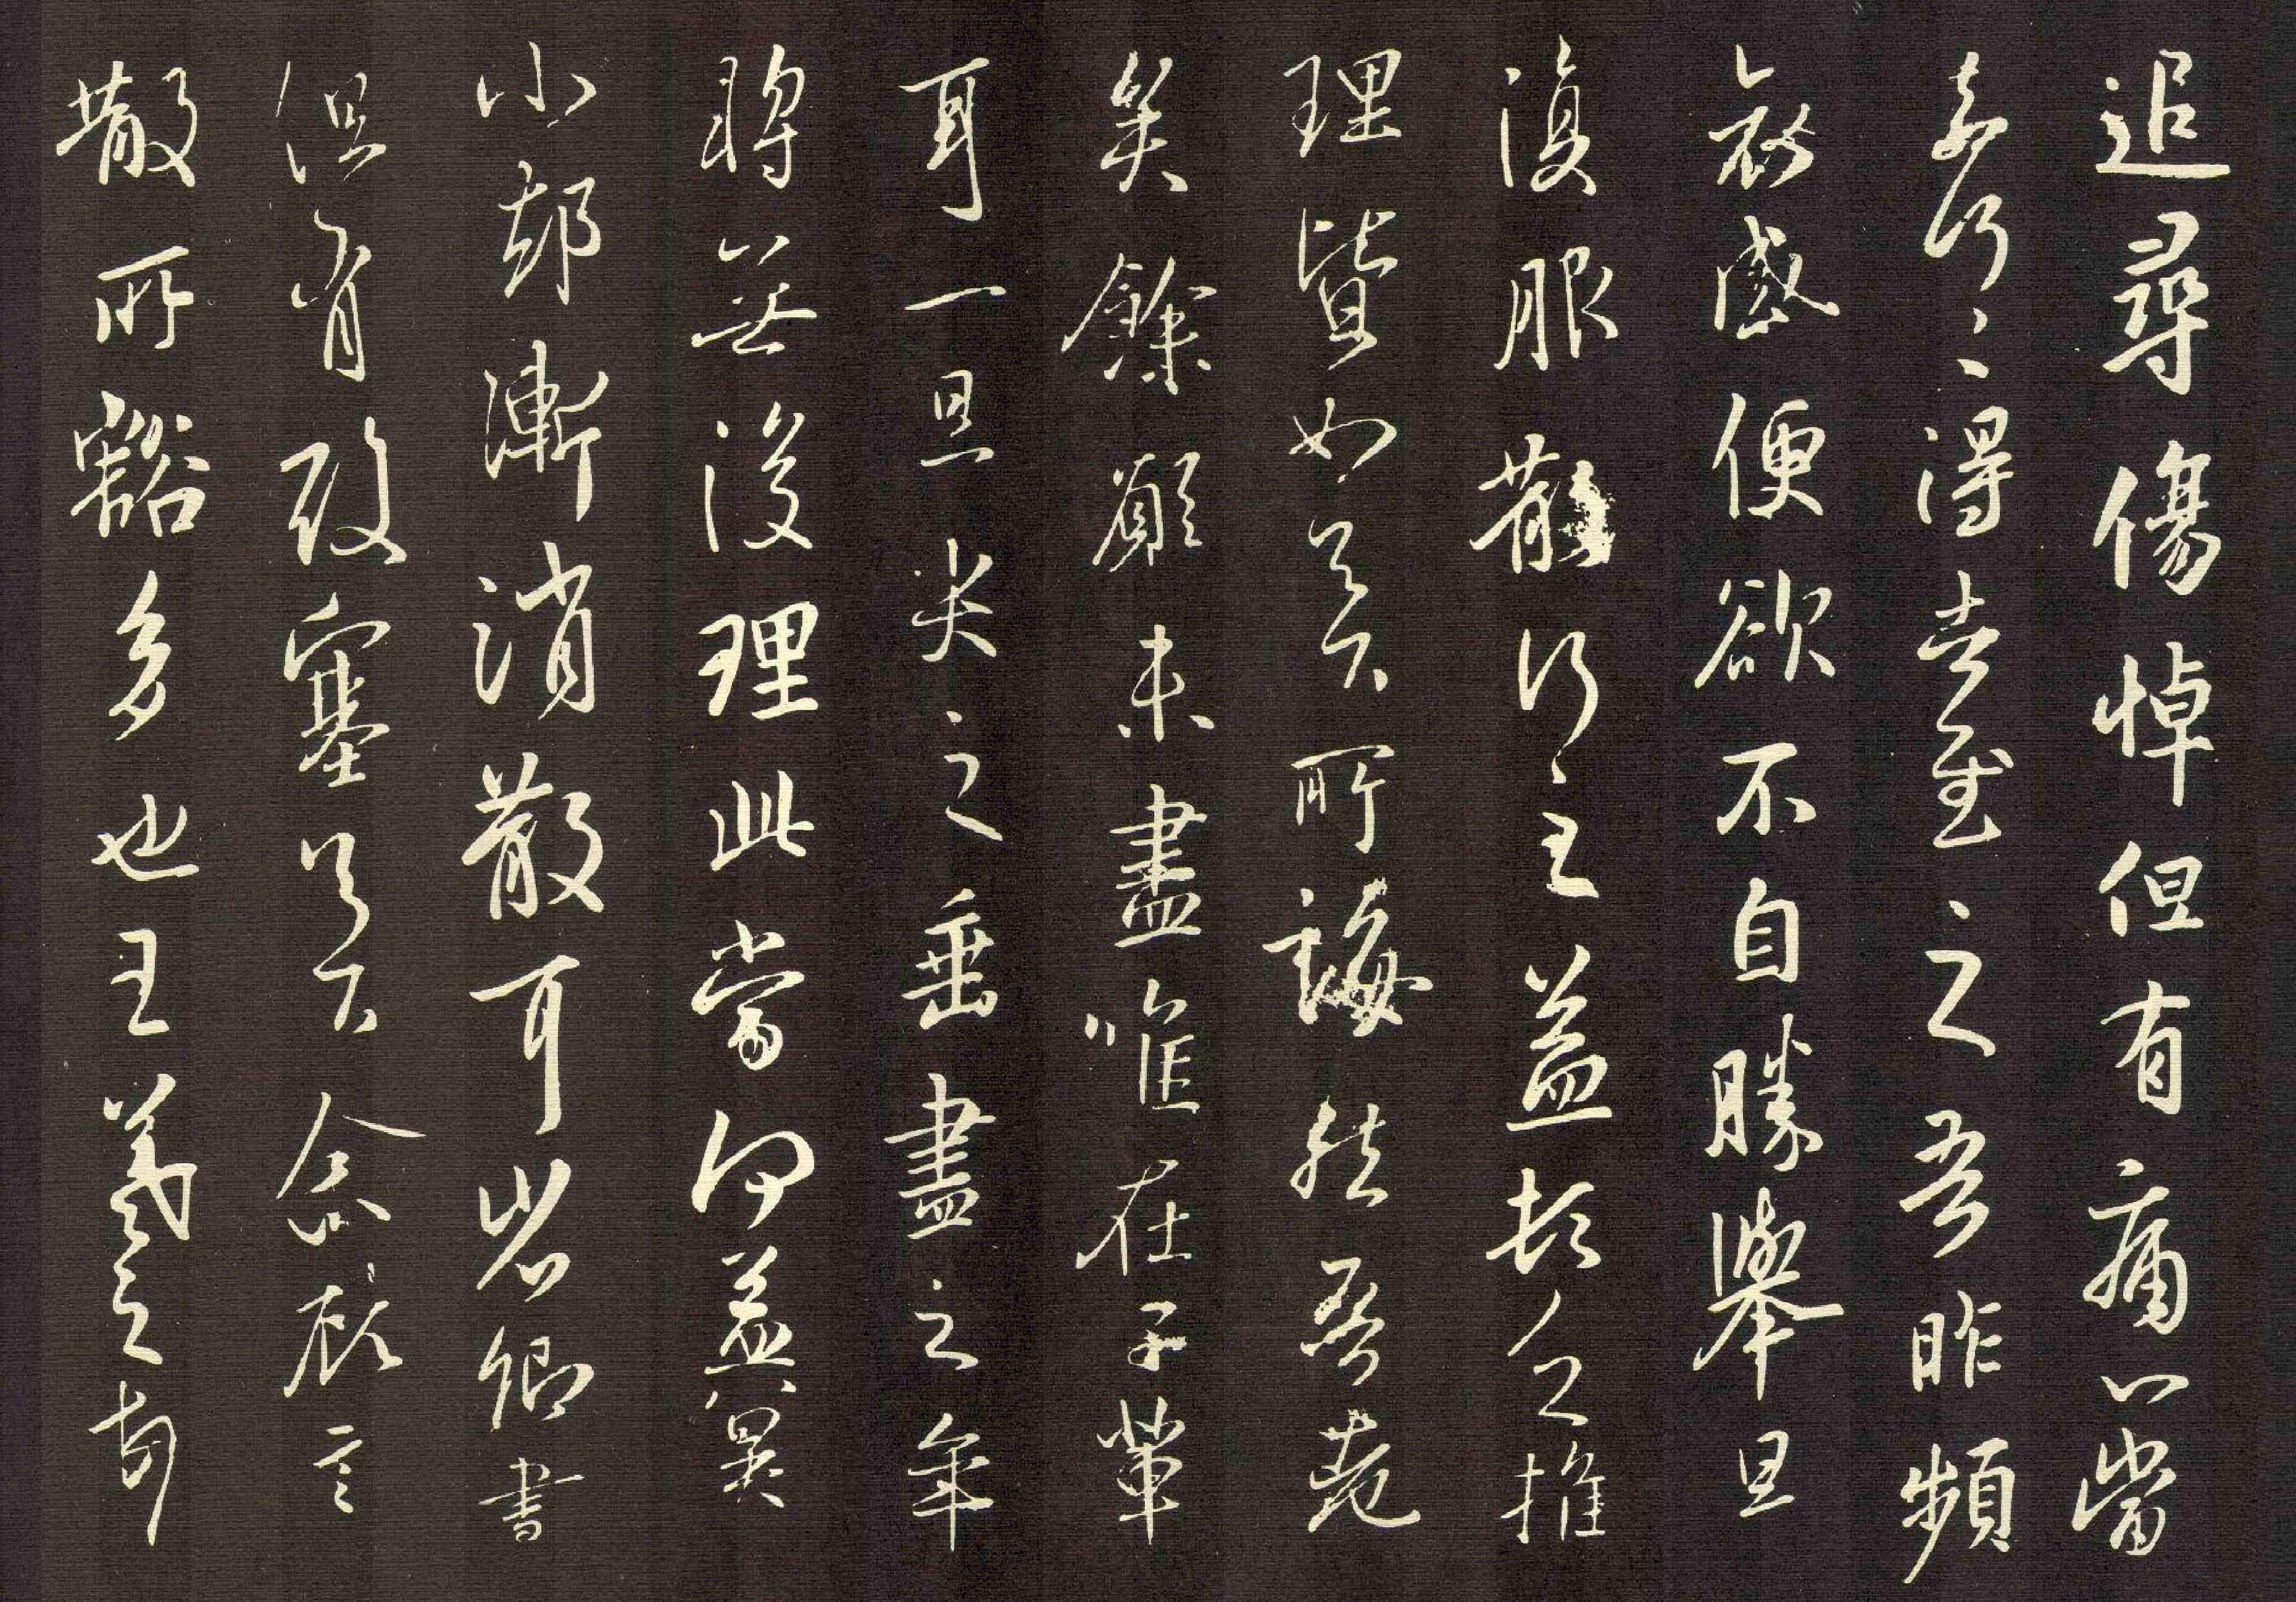 追尋傷悼但有痛心當
奈何〻得告慰之吾昨頻
哀感便欲不自勝舉旦
復服散行之益頓乏推
理皆如足下所誨然吾老
矣餘願未盡唯在子輩
耳一旦哭之垂盡之年
將無復理此當何益冀
小卻漸消散耳省卿書
但有酸塞足下念顧言
散所豁多也王羲之頓首